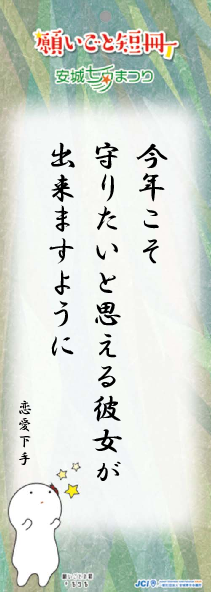 願いごと短冊
安城七夕まつり
今年こそ
守りたいと思える彼女が
出来ますように
恋愛下手
JCI